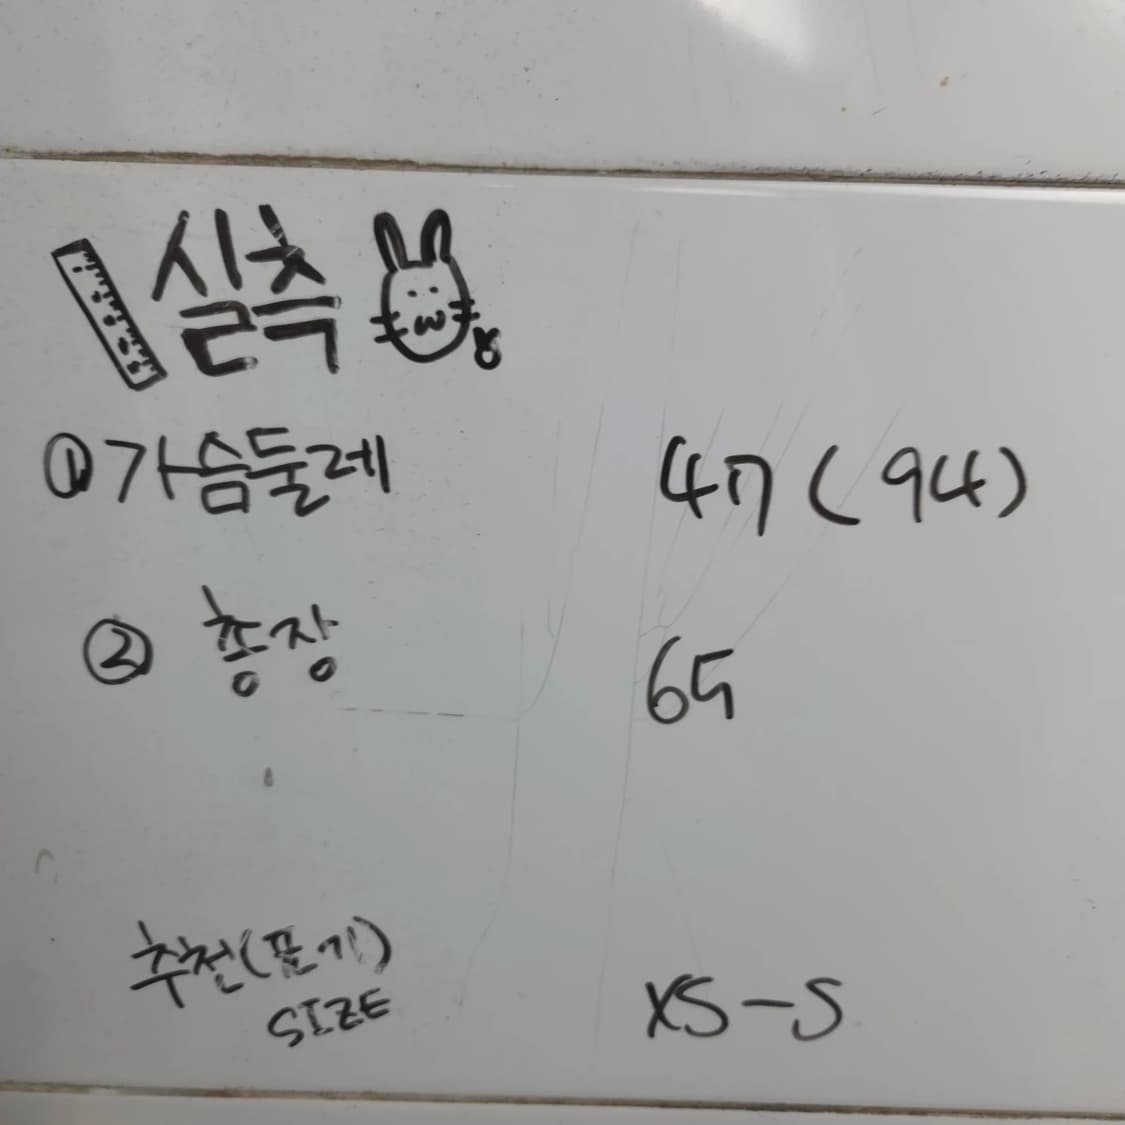 실측
① 가슴둘레 47 (94)
② 총장 65
추천(표기) XS-S
SIZE